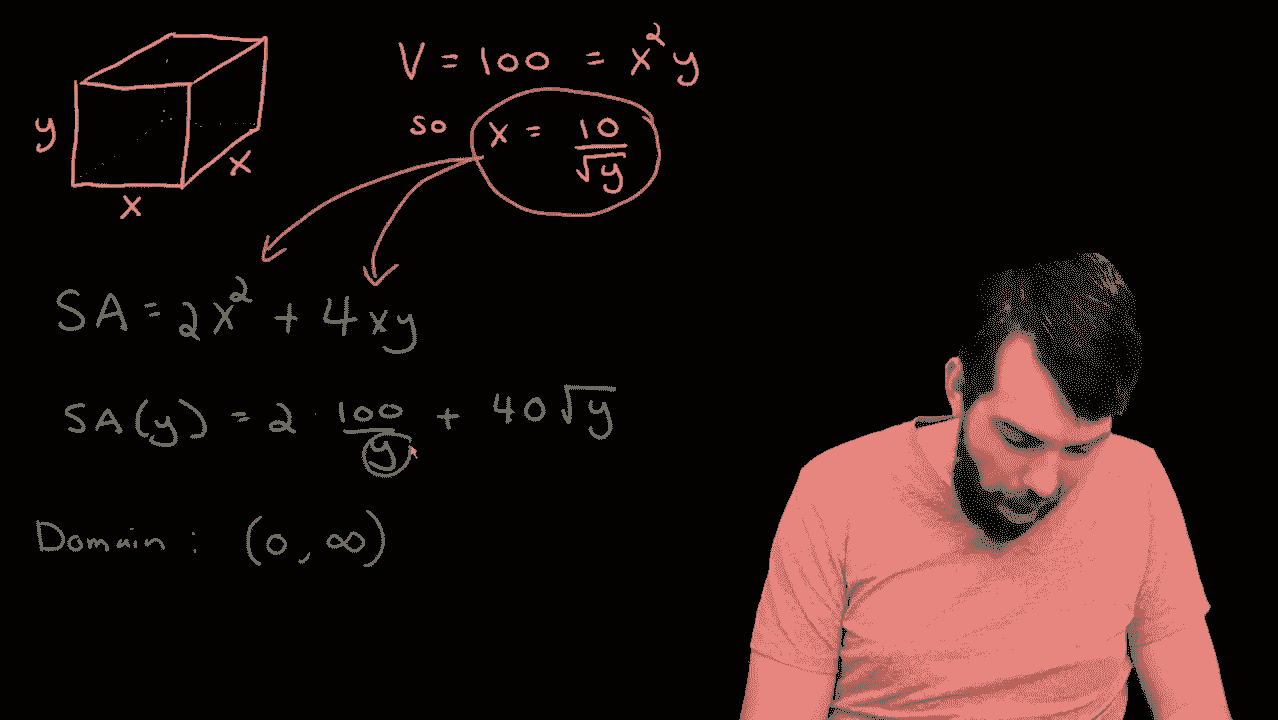 V = 100 = x²y
so x = 10/√y
y
x
x
SA = 2x² + 4xy
SA(y) = 2 · 100/y + 40√y
Domain : (0, ∞)